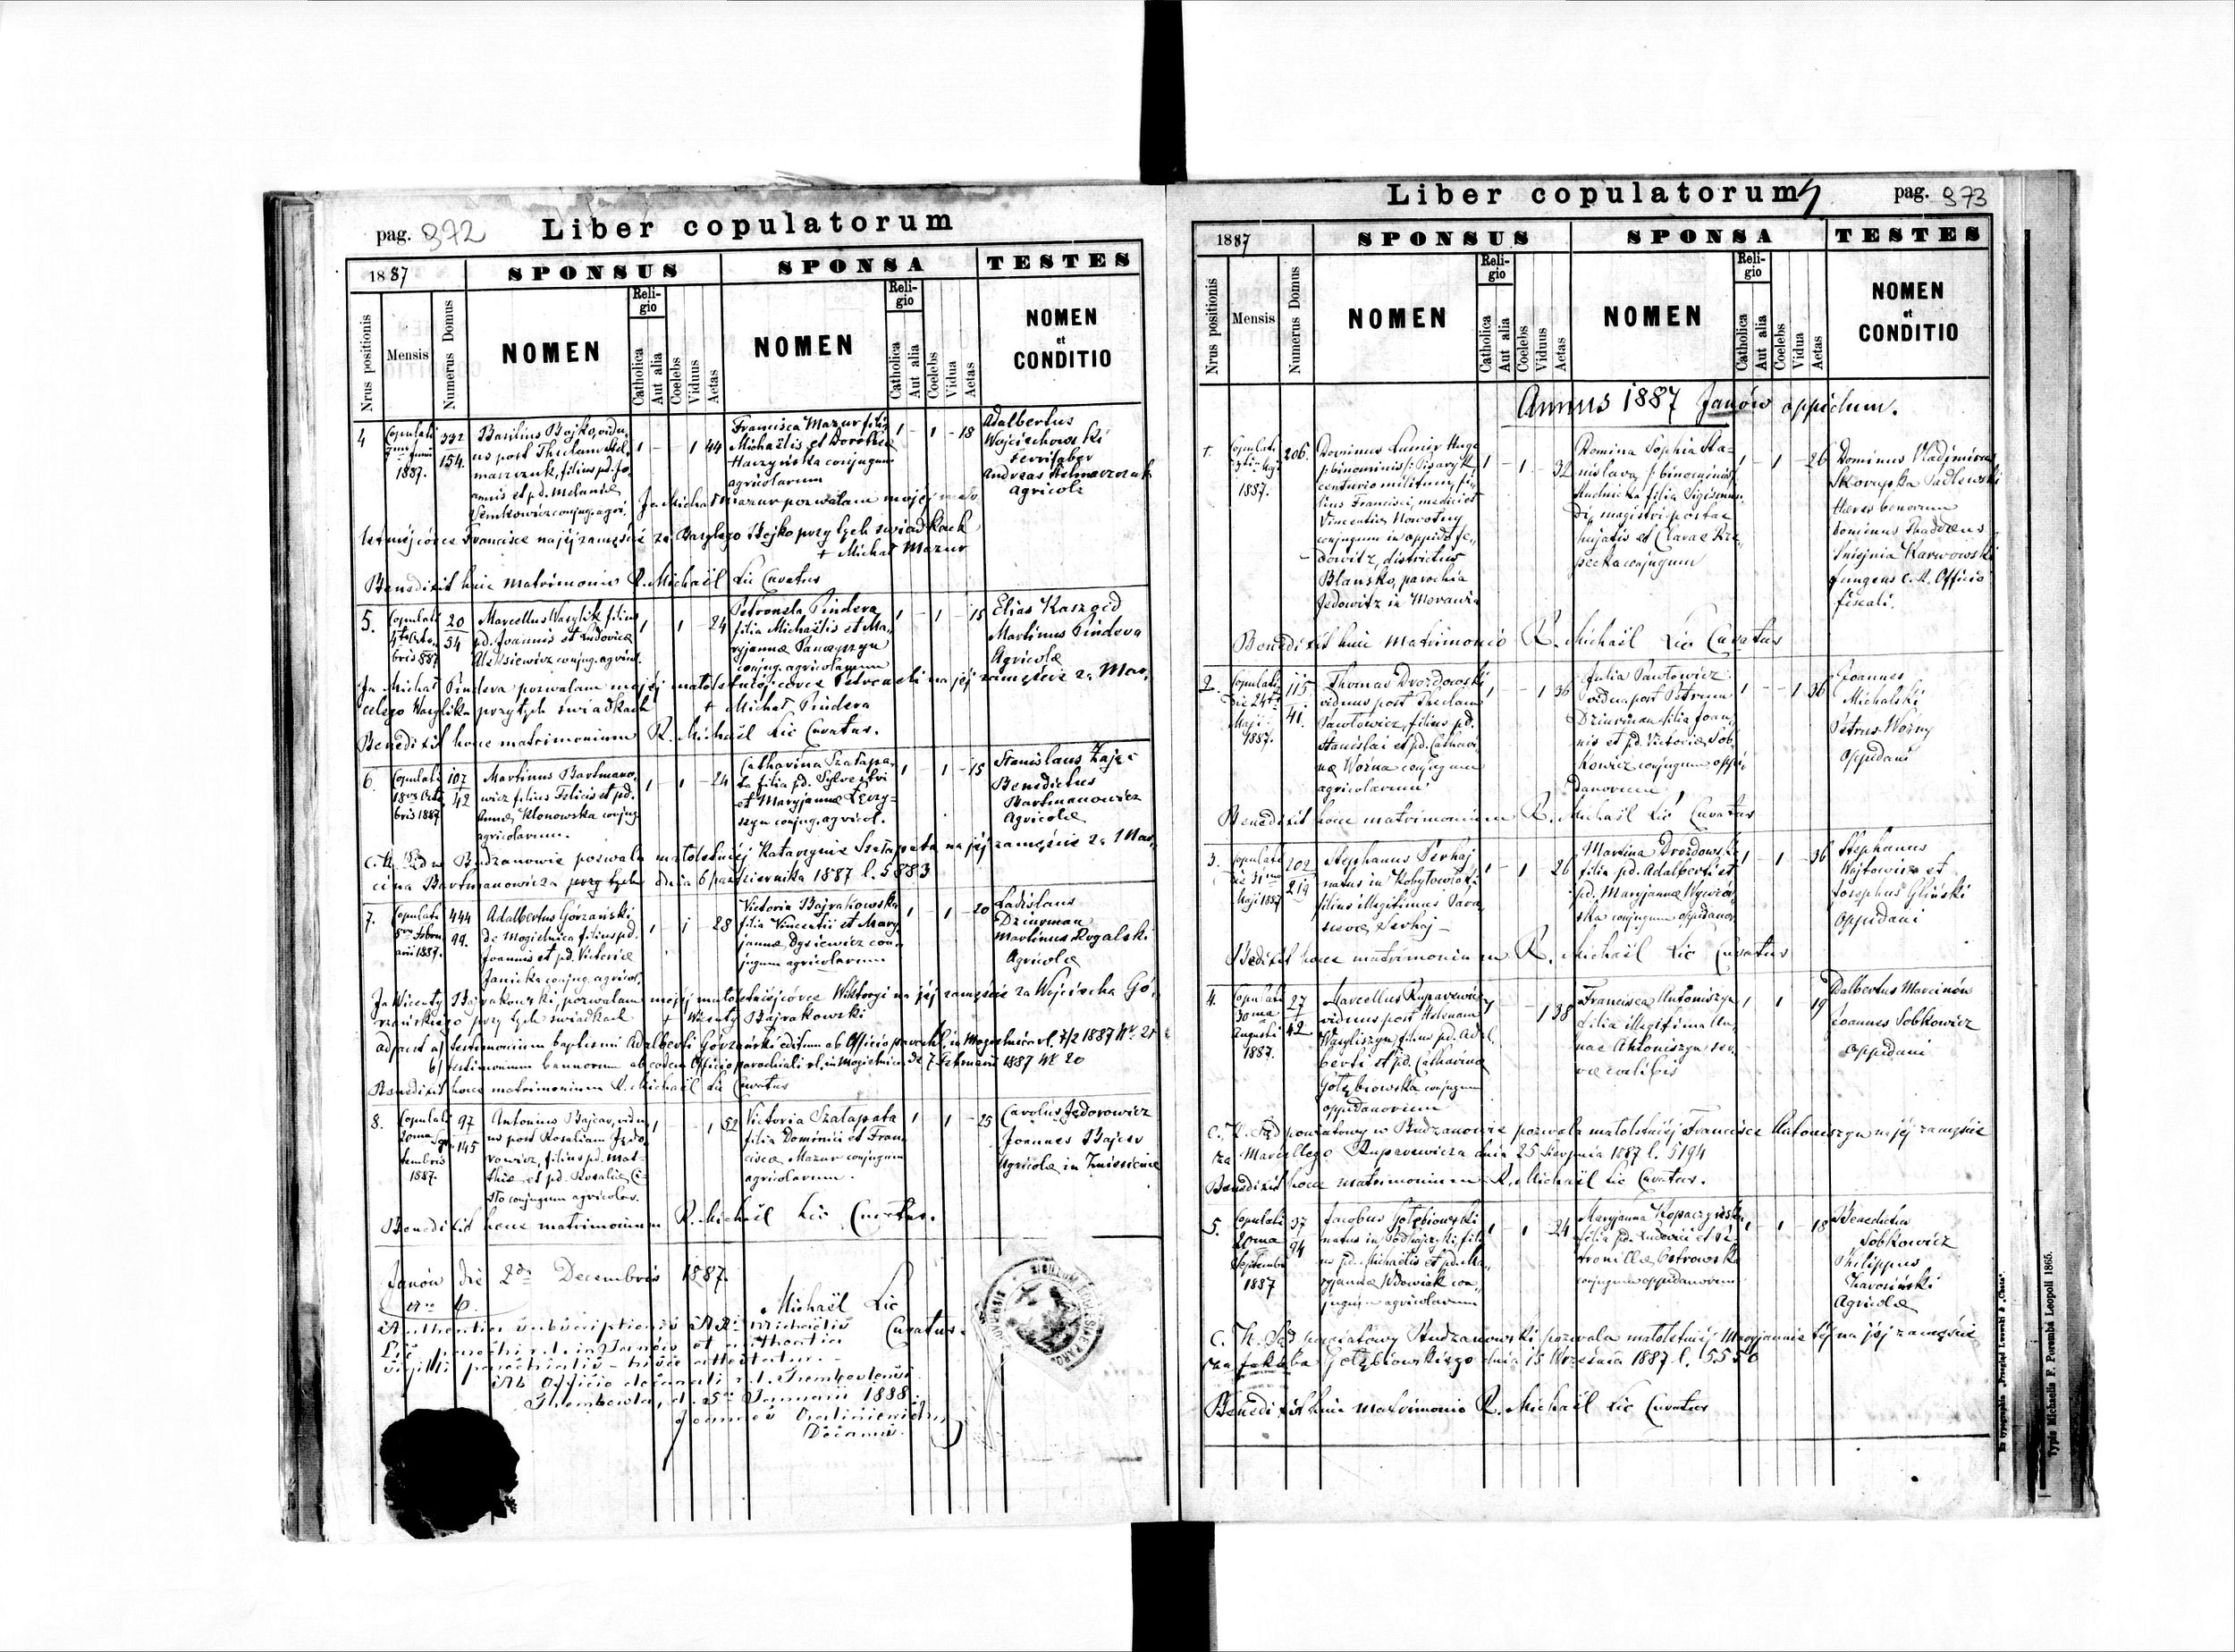 pag. 972 Liber copulatorum
1887 SPONSUS SPONSA TESTES
Nrus positionis
Mensis
Numerus Domus
NOMEN
Religio
Catholica
Aut alia
Coelebs
Viduus
Aetas
NOMEN
Religio
Catholica
Aut alia
Coelebs
Vidua
Aetas
NOMEN
et
CONDITIO
4
Copulati
Junii
1887.
332
154.
Basilius Bojko, vidu-
us post Theclam
filius pd. Jo-
annis et pd. Melaniæ
Senkowicz conjug. agri.
1 - - 1 44
Francisca Mazur filia
Michaëlis et Dorothea
Haczyńska conjugum
agricolarum
1 - 1 - 18
Adalbertus
Wojciechowski
ferrifaber
Andreas
Agricolæ
Ja Michał Mazur pozwalam mojéj mało-
letniéj córce Francisce na jéj zamęście za Bazylego Bojko przy tych świadkach
+ Michał Mazur
Benedixit huic matrimonio R. Michaël Lic Curatus
5.
Copulati
4ta Octo-
bris 887
20
54
Marcellus Wasylik filius
pd. Joannis et Ludovicæ
conjug. agricol.
1 - 1 - 24
Petronela Pindera
filia Michaëlis et Ma-
ryjannæ
conjug. agricolarum
1 - 1 - 18
Elias Kaszoid
Martinus Pindera
Agricolæ
Ja Michał Pindera pozwalam mojéj małoletniéj córce Petroneli na jéj zamęście za Mar-
celego Wasylika przy tych świadkach + Michał Pindera
Benedixit hocce matrimonium R. Michaël Lic Curatus.
6.
Copulati
18va Octo-
bris 1887
107
42
Martinus Bartmano-
wicz filius Felicis et pd.
Annæ Klonowska conjug.
agricolarum.
1 - 1 - 24
Catharina Szałapa-
ta filia pd. Sylvestri
et Maryjannæ
conjug. agricol.
1 1 - 15
Stanislaus Zając
Benedictus
Bartmanowicz
Agricolæ
c. k. Sąd w Budzanowie pozwala małoletniéj Katarzynie Szałapata na jéj zamęście za Mar-
cina Bartmanowicza przy tych dnia 6 października 1887 l. 5883
7.
Copulati
Febru-
arii 1887.
444
99.
Adalbertus Górzański
de Mogielnica filius pd.
Joannis et pd. Victoriæ
Janicka conjug. agricol.
1 - 1 - 28
Victoria Bajrakowska
filia Vincentii et Mary-
jannæ Dysiewicz con-
jugum agricolarum
1 - 1 - 20
Ladislaus
Dziurman
Martinus Rogalski
Agricolæ
Ja Wicenty Bajrakowski pozwalam mojéj małoletniéj córce Wiktoryi na jéj zamęście za Wojciecha Gó-
rzańskiego przy tych świadkach + Wicenty Bajrakowski
adjacet a/ testimonium baptismi Adalberti Górzański editum ab Officio parochi. in Mogielnica rl. 7/2 1887 Nr 21
b/ testimonium bannorum ab eodem Officio parochiali rl. in Mogielnica de 7 Februarii 1887 Nr 20
Benedixit hocce matrimonium R. Michaël Lic Curatus
8.
Copulati
20ma Sep-
tembris
1887.
97
145
Antonius Bajcar, vidu-
us post Rosaliam Jędo-
rowicz, filius pd. Mat-
thiæ et pd. Rosaliæ Ci-
sło conjugum agricolar.
1 - - 1 52
Victoria Szałapata
filia Dominici et Fran-
ciscæ Mazur conjugum
agricolarum.
1 1 - 25
Carolus Jędorowicz
Joannes Bajcar
Agricolæ in Zniesienie
Benedixit hocce matrimonium R. Michaël Lic Curatus.
Janów die 2da Decembris 1887.
Michaël Lic
Curatus.
Authentia subscriptionis A.R. Michaëlis
Lic parochi r.l. in Janów et authentia
sigilli parochialis - hisce attestatur.-
Ab Officio decanali r.l. Trembovlensi
Trembowla, d. 5 Januarii 1888.
Joannes
Decanus.
Liber copulatorum pag. 973
1887 SPONSUS SPONSA TESTES
Nrus positionis
Mensis
Numerus Domus
NOMEN
Religio
Catholica
Aut alia
Coelebs
Viduus
Aetas
NOMEN
Religio
Catholica
Aut alia
Coelebs
Vidua
Aetas
NOMEN
et
CONDITIO
Annus 1887 Janów oppidum.
1.
Copulati
1887.
206.
Dominus Hugo
/:binominis:/ Pisaryk
centurio militum, fi-
lius Francisci, medici et
Vincentiæ Nowotny
conjugum in oppido Je-
dowitz, districtus
Blansko, parochia
Jedowitz in Moravia
1 - 1 - 32
Domina Sophia Sta-
nislava /:binominis:/
Rudnicka filia Sigismun-
di, magistri postae
hujatis et Claræ Rze-
pecka conjugum
1 - 1 - 26
Dominus Vladimirus
Skorupka Padlewski
Hæres bonorum
Dominus Thaddæus
Karwowski
fungens C. R. Officio
fiscali.
Benedixit huic matrimonio R. Michaël Lic Curatus
2.
Copulati
die 24ta
Maji
1887.
115
41.
Thomas Drozdowski
viduus post Theclam
Pawłowicz, filius pd.
Stanislai et pd. Cathari-
næ Woźna conjugum
agricolarum
1 - - 1 36
Julia Pawłowicz
vidua post Petrum
Dziurman filia Joan-
nis et pd. Victoriæ Sob-
kowicz conjugum oppi-
danorum
1 - - 1 36
Joannes
Michalski
Petrus Woźny
Oppidani
Benedixit hocce matrimonium R. Michaël Lic Curatus
3.
Copulati
die 31ma
Maji 1887
202
219
Stephanus Serhaj
natus in Kobyłowłoki
filius illegitimus Para-
scevæ Serhaj -
1 - 1 26
Martina Drozdowska
filia pd. Adalberti et
pd. Maryjannæ
conjugum oppidanor.
1 - 1 - 36
Stephanus
Wójtowicz et
Josephus Gliński
Oppidani
Bedixit hocce matrimonium R. Michaël Lic Curatus
4.
Copulati
30ma
Augusti
1887.
27
42
Marcellus Ruparewicz
viduus post Helenam
Wasyliszyn filius pd. Adal-
berti et pd. Catharinæ
Gołębiowska conjugum
oppidanorum
1 - - 1 38
Francisca Antoniszyn
filia illegitima An-
nae Antoniszyn ser-
væ cælibis
1 1 19
Adalbertus Marcinów
Joannes Sobkowicz
Oppidani
C. K. Sąd powiatowy w Budzanowie pozwala małoletniéj Francisce Antoniszyn na jéj zamęście
za Marcellego Ruparewicza dnia 25 Sierpnia 1887 l. 5194
Benedixit hocce matrimonium R. Michaël Lic Curatus.
5.
Copulati
20ma
Septembr.
1887
37
94
Jacobus Gołębiowski
natus in Podhajczyki, fili-
us pd. Michaëlis et pd. Ma-
ryjannæ Wdowiak con-
jugum agricolarum
1 - 1 24
Maryjanna Kopaczyńska
filia pd. Ludovici et Pe-
tronillæ Ostrowska
conjugum oppidanorum
1 - 1 - 18
Benedictus
Sobkowicz
Philippus
Agricolæ
C. K. Sąd powiatowy Budzanowski pozwala małoletniéj Maryjannie téj na jéj zamęście
za Jakóba Gołębiowskiego dnia 15 Września 1887 l. 5556
Benedixit huic matrimonio R. Michaël Lic Curatus
Typis Michaelis F. Poremba Leopoli 1865.